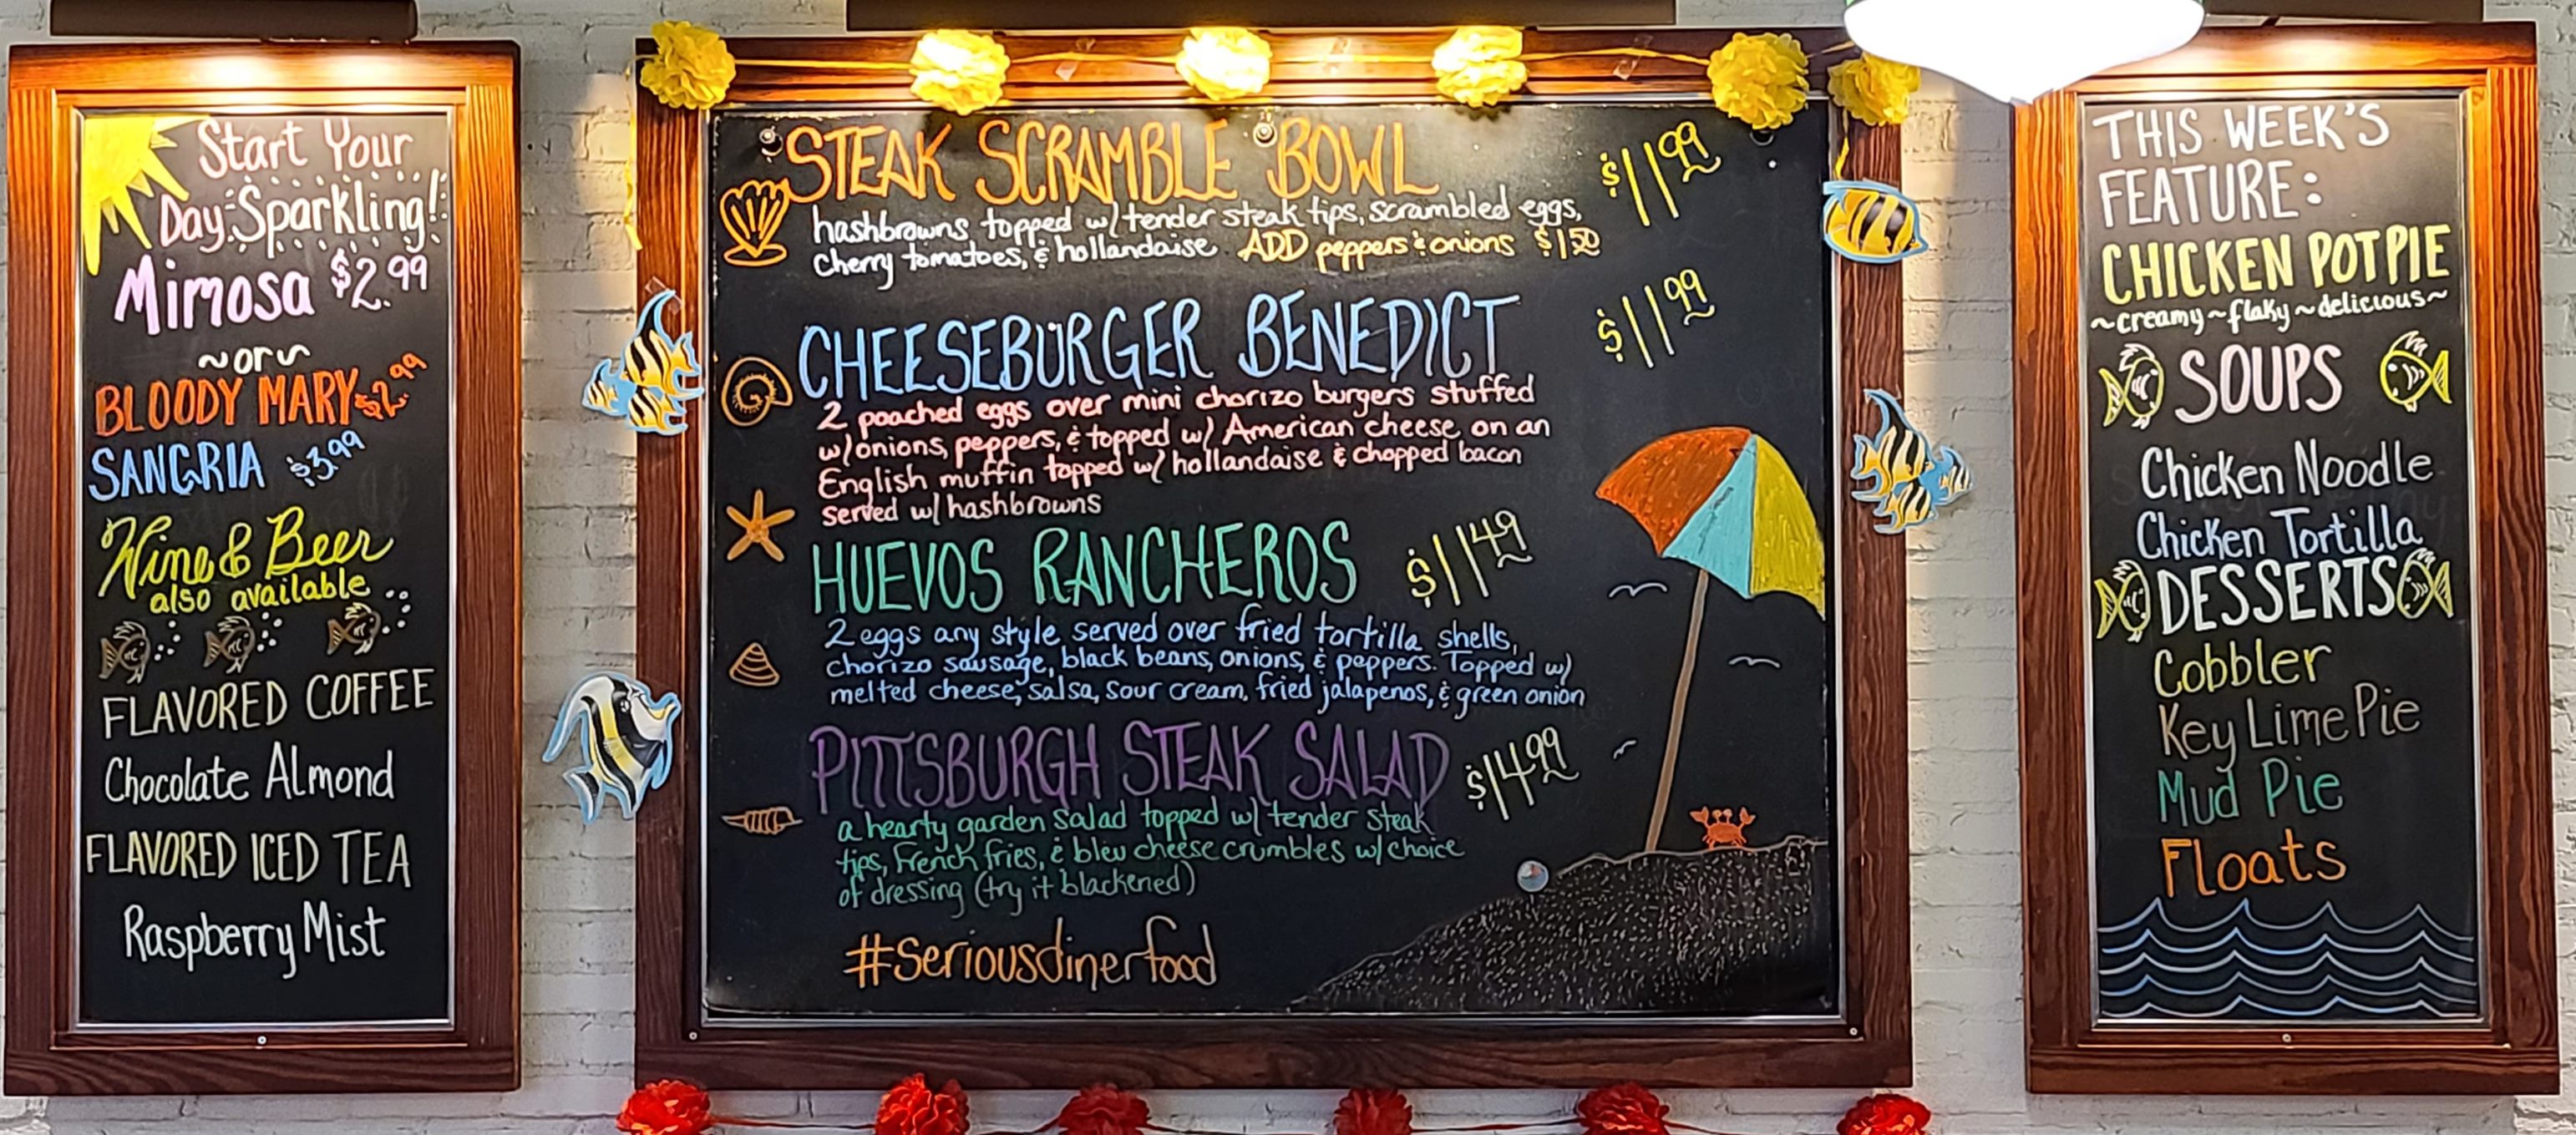 Start Your
Day Sparkling!
Mimosa $2.99
~or~
BLOODY MARY $2.99
SANGRIA $3.99
Wine & Beer
also available
FLAVORED COFFEE
Chocolate Almond
FLAVORED ICED TEA
Raspberry Mist
STEAK SCRAMBLE BOWL $11.99
hashbrowns topped w/ tender steak tips, scrambled eggs,
cherry tomatoes, & hollandaise. ADD peppers & onions $1.50
CHEESEBURGER BENEDICT $11.99
2 poached eggs over mini chorizo burgers stuffed
w/ onions, peppers, & topped w/ American cheese on an
English muffin topped w/ hollandaise & chopped bacon
served w/ hashbrowns
HUEVOS RANCHEROS $11.49
2 eggs any style served over fried tortilla shells,
chorizo sausage, black beans, onions, & peppers. Topped w/
melted cheese, salsa, sour cream, fried jalapenos, & green onion
PITTSBURGH STEAK SALAD $14.99
a hearty garden salad topped w/ tender steak
tips, French fries, & bleu cheese crumbles w/ choice
of dressing (try it blackened)
#seriousdinerfood
THIS WEEK'S
FEATURE:
CHICKEN POT PIE
~creamy~flaky~delicious~
SOUPS
Chicken Noodle
Chicken Tortilla
DESSERTS
Cobbler
Key Lime Pie
Mud Pie
Floats